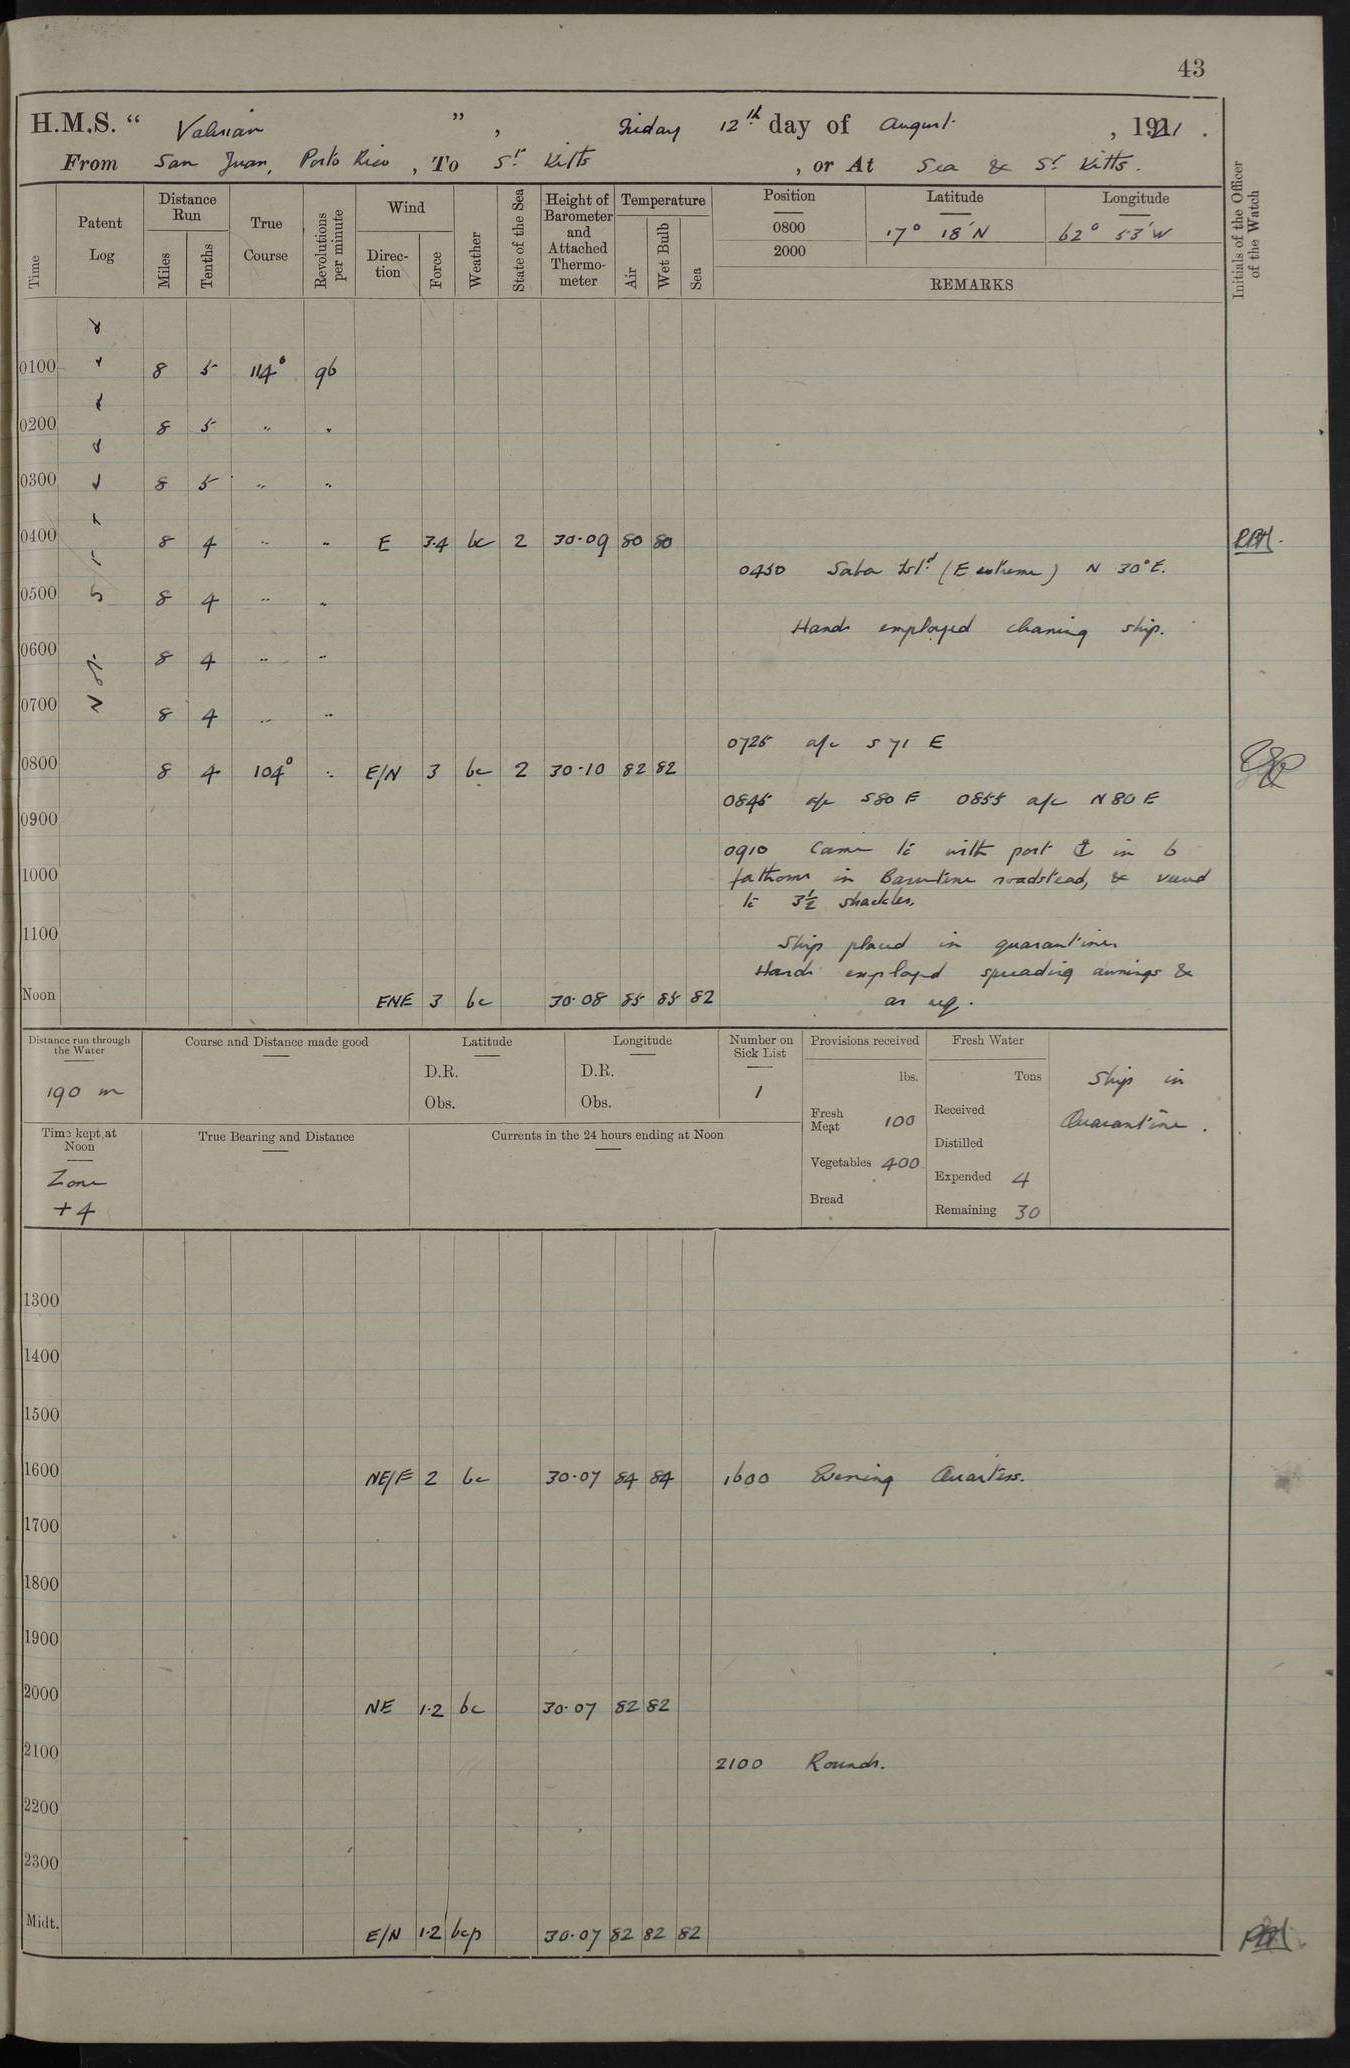 43
H.M.S. " Valerian ", Friday 12th day of August, 1921.
From San Juan, Porto Rico, To St Kitts, or At Sea & St Kitts.
Time
Patent Log
Distance Run
Miles
Tenths
True Course
Revolutions per minute
Wind
Direction
Force
Weather
State of the Sea
Height of Barometer and Attached Thermometer
Temperature
Air
Wet Bulb
Sea
Position Latitude Longitude
0800 17° 18' N 62° 53' W
2000
REMARKS
Initials of the Officer of the Watch
Not Streamed
0100 8 5 114° 96
0200 8 5 " "
0300 8 5 " "
0400 8 4 " " E 3.4 bc 2 30.09 80 80
0450 Saba Isld (E extreme) N 30° E.
0500 8 4 " "
Hands employed cleaning ship.
0600 8 4 " "
0700 8 4 " "
0725 a/c S 71 E
0800 8 4 104° " E/N 3 bc 2 30.10 82 82
0845 a/c S80 E 0855 a/c N 80 E
0900
0910 Came to with port ⚓ in 6
1000 fathoms in roadstead, & veered
to 3½ shackles.
1100
Ship placed in quarantine
Hands employed spreading awnings &
Noon ENE 3 bc 30.08 85 85 82 as req.
Distance run through the Water
190 m
Course and Distance made good
Latitude
D.R.
Obs.
Longitude
D.R.
Obs.
Number on Sick List
1
Provisions received
lbs.
Fresh Meat 100
Vegetables 400
Bread
Fresh Water
Tons
Received
Distilled
Expended 4
Remaining 30
Ship in
Quarantine.
Time kept at Noon
Zone
+4
True Bearing and Distance
Currents in the 24 hours ending at Noon
1300
1400
1500
1600 NE/E 2 bc 30.07 84 84 1600 Evening Quarters.
1700
1800
1900
2000 NE 1.2 bc 30.07 82 82
2100 2100 Rounds.
2200
2300
Midt. E/N 1.2 bcp 30.07 82 82 82